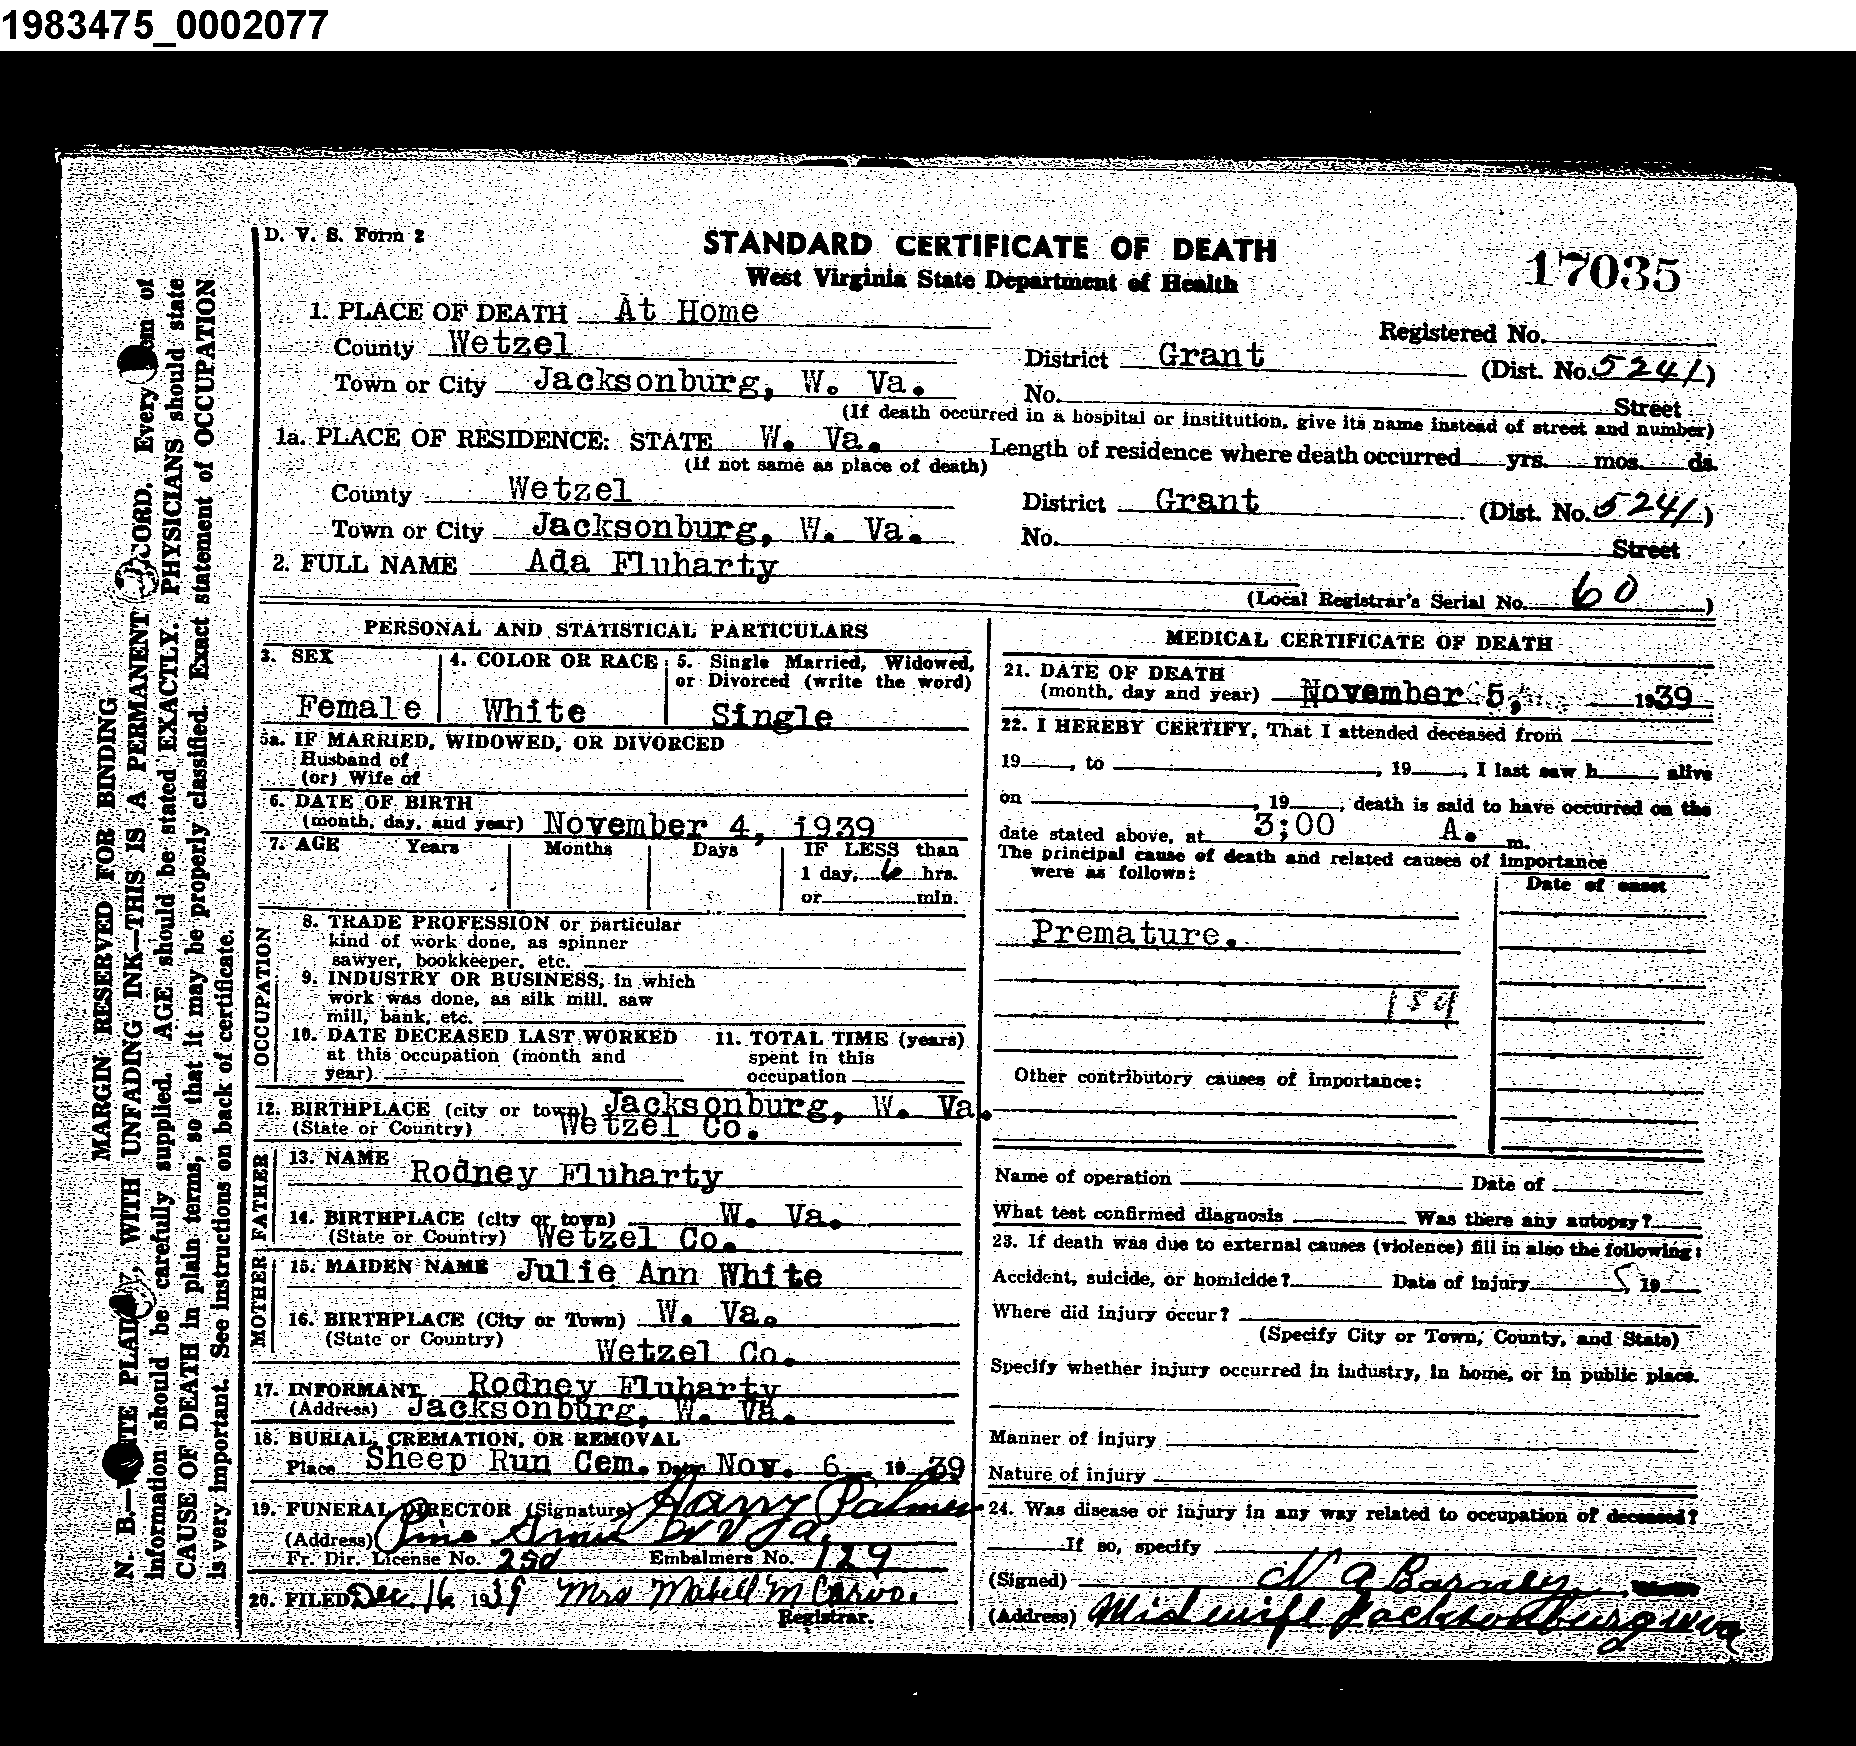 1983475_0002077
D. V. S. Form 2
STANDARD CERTIFICATE OF DEATH
West Virginia State Department of Health
17035
1. PLACE OF DEATH At Home
Registered No.
County Wetzel District Grant (Dist. No. 5241)
Town or City Jacksonburg, W. Va. No. Street
(If death occurred in a hospital or institution, give its name instead of street and number)
1a. PLACE OF RESIDENCE: STATE W. Va. Length of residence where death occurred yrs. mos. ds.
(If not same as place of death)
County Wetzel District Grant (Dist. No. 5241)
Town or City Jacksonburg, W. Va. No. Street
2. FULL NAME Ada Fluharty
(Local Registrar's Serial No. 60)
PERSONAL AND STATISTICAL PARTICULARS
3. SEX
Female
4. COLOR OR RACE
White
5. Single Married, Widowed,
or Divorced (write the word)
Single
5a. IF MARRIED, WIDOWED, OR DIVORCED
Husband of
(or) Wife of
6. DATE OF BIRTH
(month, day, and year) November 4, 1939
7. AGE Years Months Days IF LESS than
1 day, 6 hrs.
or min.
OCCUPATION
8. TRADE PROFESSION or particular
kind of work done, as spinner
sawyer, bookkeeper, etc.
9. INDUSTRY OR BUSINESS, in which
work was done, as silk mill, saw
mill, bank, etc.
10. DATE DECEASED LAST WORKED
at this occupation (month and
year)
11. TOTAL TIME (years)
spent in this
occupation
12. BIRTHPLACE (city or town) Jacksonburg, W. Va.
(State or Country) Wetzel Co.
FATHER
13. NAME Rodney Fluharty
14. BIRTHPLACE (city or town) W. Va.
(State or Country) Wetzel Co.
MOTHER
15. MAIDEN NAME Julie Ann White
16. BIRTHPLACE (City or Town) W. Va.
(State or Country) Wetzel Co.
17. INFORMANT Rodney Fluharty
(Address) Jacksonburg, W. Va.
18. BURIAL, CREMATION, OR REMOVAL
Place Sheep Run Cem. Date Nov. 6 1939
19. FUNERAL DIRECTOR (Signature) Harry Palmer
(Address) Pine Grove W Va.
Fr. Dir. License No. Embalmers No. 129
20. FILED Dec. 16 1939 Mrs
Registrar.
MEDICAL CERTIFICATE OF DEATH
21. DATE OF DEATH
(month, day and year) November 5, 1939
22. I HEREBY CERTIFY, That I attended deceased from
19 , to , 19 , I last saw h alive
on , 19 , death is said to have occurred on the
date stated above, at 3;00 A. m.
The principal cause of death and related causes of importance
were as follows:
Date of onset
Premature.
159
Other contributory causes of importance:
Name of operation Date of
What test confirmed diagnosis Was there any autopsy?
23. If death was due to external causes (violence) fill in also the following:
Accident, suicide, or homicide? Date of injury , 19
Where did injury occur?
(Specify City or Town, County, and State)
Specify whether injury occurred in industry, in home, or in public place.
Manner of injury
Nature of injury
24. Was disease or injury in any way related to occupation of deceased?
If so, specify
(Signed) Barnley
(Address) Midwife Jacksonburg W Va
MARGIN RESERVED FOR BINDING
N. B.— PLAI , WITH UNFADING INK—THIS IS A PERMANENT CORD. Every of
information should be carefully supplied. AGE should be stated EXACTLY. PHYSICIANS should state
CAUSE OF DEATH in plain terms, so that it may be properly classified. Exact statement of OCCUPATION
is very important. See instructions on back of certificate.